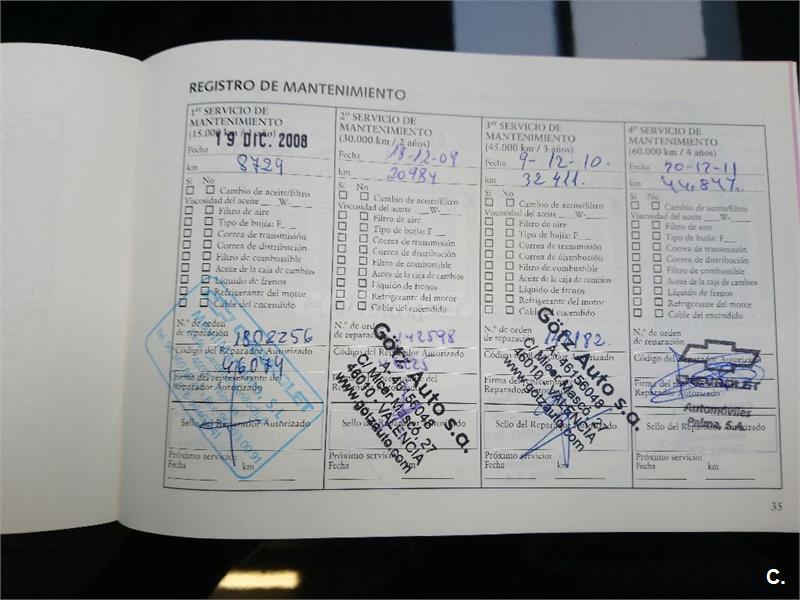 REGISTRO DE MANTENIMIENTO
1er SERVICIO DE
MANTENIMIENTO
(15.000 km / 1 año)
19 DIC. 2008
Fecha
km 8729
Sí No
Cambio de aceite/filtro
Viscosidad del aceite __W-__
Filtro de aire
Tipo de bujía: F__
Correa de transmisión
Correa de distribución
Filtro de combustible
Aceite de la caja de cambios
Líquido de frenos
Refrigerante del motor
Cable del encendido
N.º de orden
de reparación 1802256
Código del Reparador Autorizado
46074
Firma del representante del
Reparador Autorizado
Sello del Reparador Autorizado
Próximo servicio:
Fecha km
2º SERVICIO DE
MANTENIMIENTO
(30.000 km / 2 años)
Fecha 18-12-09
km 20984
Sí No
Cambio de aceite/filtro
Viscosidad del aceite __W-__
Filtro de aire
Tipo de bujía: F__
Correa de transmisión
Correa de distribución
Filtro de combustible
Aceite de la caja de cambios
Líquido de frenos
Refrigerante del motor
Cable del encendido
N.º de orden
de reparación 142598
Código del Reparador Autorizado
Götz Auto s.a.
A. 46156048
C/. Micer Mascó, 27
46010 VALENCIA
www.gotzauto.com
Sello del Reparador Autorizado
Próximo servicio:
Fecha km
3er SERVICIO DE
MANTENIMIENTO
(45.000 km / 3 años)
Fecha 9-12-10.
km 32411.
Sí No
Cambio de aceite/filtro
Viscosidad del aceite __W-__
Filtro de aire
Tipo de bujía: F__
Correa de transmisión
Correa de distribución
Filtro de combustible
Aceite de la caja de cambios
Líquido de frenos
Refrigerante del motor
Cable del encendido
N.º de orden
de reparación
Código del Reparador Autorizado
Götz Auto s.a.
A. 46156048
C/. Micer Mascó, 27
46010 VALENCIA
www.gotzauto.com
Sello del Reparador Autorizado
Próximo servicio:
Fecha km
4º SERVICIO DE
MANTENIMIENTO
(60.000 km / 4 años)
Fecha 20-12-11
km 44.847.
Sí No
Cambio de aceite/filtro
Viscosidad del aceite __W-__
Filtro de aire
Tipo de bujía: F__
Correa de transmisión
Correa de distribución
Filtro de combustible
Aceite de la caja de cambios
Líquido de frenos
Refrigerante del motor
Cable del encendido
N.º de orden
de reparación
Código del Reparador Autorizado
CHEVROLET
Reparador Autorizado
Automóviles
Palma, S.A.
Sello del Reparador Autorizado
Próximo servicio:
Fecha km
35
C.